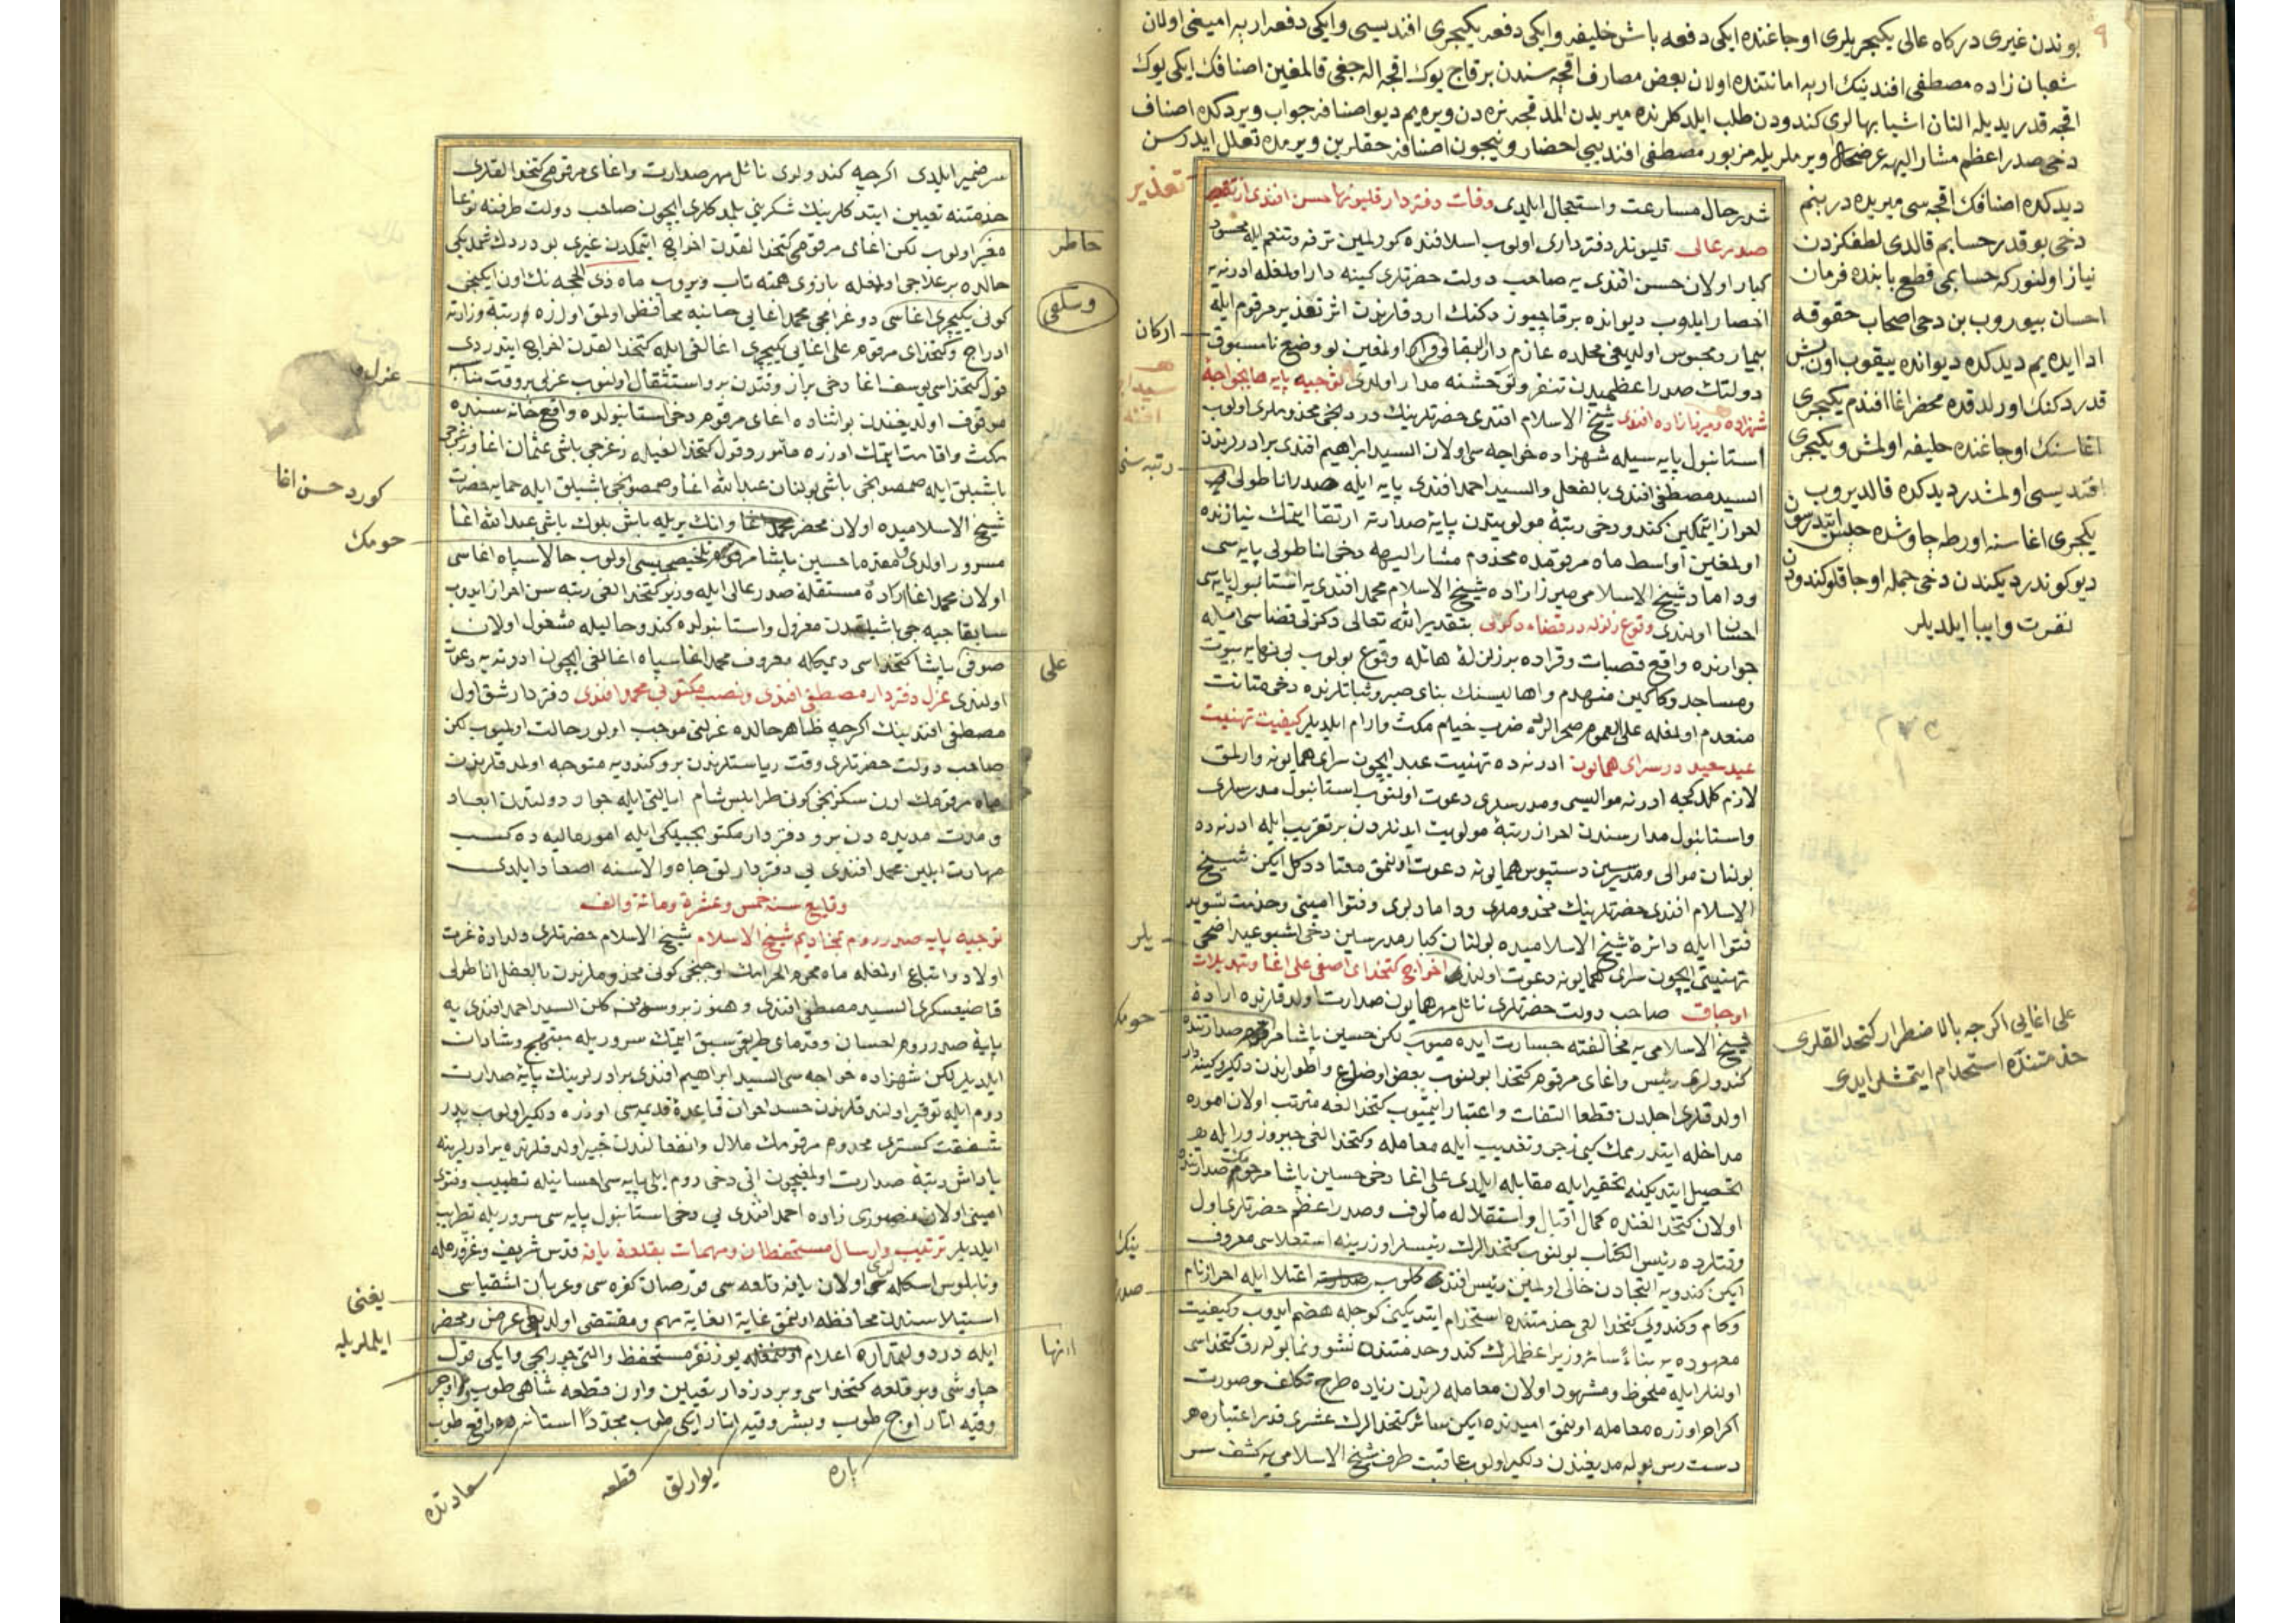 بوندن غیری درکاه عالی یکیچریلری اوجاغنده ایکی دفعه باش خلیفه وایکی دفعه یکیچری افندیسی وایکی دفعه ارپه امینی اولان
شعبان زاده مصطفی افندینك ارپه امانتنده اولان بعض مصارف اقچه سندن برقاج یوك اقچه اله جغی قالمغین اصنافك ایکی یوك
اقچه قدر یدیله النان اشیا بهالری کندودن طلب ایلدکلرنده میریدن المدقجه نره دن ویره یم دیو اصنافه جواب ویردکده اصناف
دخی صدر اعظم مشار الیهه عرضحال ویرملریله مزبور مصطفی افندیی احضار ونیچون اصنافه حقلرین ویرمده تعلل ایدرسن
دیدکده اصنافك اقچه سی میریده در بنم
دخی بو قدر حسابم قالدی لطفکزدن
نیاز اولنورکه حسابمی قطع یابنده فرمان
احسان بیوروب بن دخی اصحاب حقوقه
ادا ایده یم دیدکده دیوانده ییقوب اون بش
قدر دکنك اورلدقده محضر اغا افندم یکیچری
اغاسنك اوجاغنده خلیفه اولمش ویکیچری
افندیسی اولمشدر دیدکده قالدیروب
یکیچری اغاسنه اورطه چاوشده حبس ایتدرسون
دیو کوندردیکندن دخی جمله اوجاقلو کندودن
نفرت وابا ایلدیلر
تعذیر
شدیر حال مسارعت واستعجال ایلدی وفات دفتردار قلیونها حسن افندی از تعذیر
صدر عالی قلیونلر دفترداری اولوب اسلافنده کورلمین ترفه وتنعم ایله محسود
کبار اولان حسن افندی یه صاحب دولت حضرتلری کینه دار اولمغله ادرنه یه
احضار ایدوب دیوانده برقاچیوز دکنك اردقلرندن اثر تعذیر مرقوم ایله
ارکان
بیمار ومحبوس اولدیغی محلده عازم دار البقا اولمغین بو وضع نامسبوق
دولتك صدر اعظمیدن تنفر وتوحشنه مدار اولدی توجیه پایه ها بخواجهٔ
شهزاده ومیرزا زاده افندی شیخ الاسلام افندی حضرتلرینك دردنجی مخدوملری اولوب
استانبول پایه سیله شهزاده خواجه سی اولان السید ابراهیم افندی برادرلرندن
رتبه سنی
السید مصطفی افندی بالفعل والسید احمد افندی پایه ایله صدر اناطولی
احراز ایتمکین کندو دخی رتبهٔ مولویتدن پایهٔ صدارته ارتقا ایتمك نیازنده
اولمغین اواسط ماه مرقومده مخدوم مشار الیهه دخی اناطولی پایه سی
وداماد شیخ الاسلامی میرزا زاده شیخ الاسلام محمد افندی یه استانبول پایه سی
احسان اولندی وقوع زلزله در قضاء دکزلی بتقدیر الله تعالی دکزلی قضاسی ایله
جوارنده واقع قصبات وقراده برزلزلهٔ هائله وقوع بولوب بی نهایه بیوت
ومساجد ودکاکین منهدم واهالیسنك بنای صبر وثباتلرنده دخی متانت
منعدم اولمغله علی العموم صحرالرده ضرب خیام مکث وارام ایلدیلر کیفیت تهنیت
عید سعید در سرای همایون ادرنه ده تهنیت عید ایچون سرای همایونه وارلمق
لازم کلدکجه ادرنه موالیسی ومدرسلری دعوت اولنوب استانبول مدرسلری
واستانبول مدارسندن احراز رتبهٔ مولویت ایدنلردن برتقریب ایله ادرنه ده
بولنان موالی ومدرسین دستبوس همایونه دعوت اولنمق معتاد دکل ایکن شیخ
الاسلام افندی حضرتلرینك مخدوملری ودامادلری وفتوا امینی وخدمت تسوید
یلر
فتوا ایله دائرهٔ شیخ الاسلامیده بولنان کبار مدرسین دخی اشبو عید اضحی
تهنیتی ایچون سرای همایونه دعوت اولندی اخراج کتخدای اصفی علی اغا وتبدیلات
اوجاق صاحب دولت حضرتلری نائل مهر همایون صدارت اولدقلرنده ارادهٔ
شیخ الاسلامی یه مخالفته جسارت ایده میوب لکن حسین پاشا صدارتنده
کندولری رئیس واغای مرقوم کتخدا بولنوب بعض اوضاع واطوارندن دلکیر وکینه دار
اولدقلری اجلدن قطعا التفات واعتبار ایتمیوب کتخدالغه مترتب اولان اموره
مداخله ایتدرممك کبی زجر وتعذیب ایله معامله وکتخدالغی جبر وزور ایله
تحصیل ایتدیکنه تحقیر ایله مقابله ایلدی علی اغا دخی حسین پاشا مرحوم صدارتنده
اولان کتخدالغنده کمال اقبال واستقلاله مألوف وصدر اعظم حضرتلری اول
وقتلرده رئیس الکتاب بولنوب کتخدالرك رئیسلر اوزرینه استعلاسی معروف
ایکن کندویه التجادن خالی اولمین رئیس افندی کلوب اعتلا ایله احراز نام
وکام وکندویی کتخدالغی خدمتنده استخدام ایتدیکنی کوجله هضم ایدوب وکیفیت
معهوده یه بناءً سائر وزیر اعظملرك کندو خدمتنده نشو ونما بولهرق کتخداسی
اولنلر ایله ملحوظ ومشهود اولان معامله لرندن زیاده طرح تکلف وصورت
اکرام اوزره معامله اولنمق امیدنده ایکن سائر کتخدالرك عشری قدر اعتباره
دست رس بوله مدیغندن دلکیر اولوب عاقبت طرف شیخ الاسلامی یه کشف سر
علی اغایی اکرچه بالاضطرار کتخدالقلری
خدمتنده استخدام ایتمشلر ایدی
سر ضمیر ایلدی اکرچه کندولری نائل مهر صدارت واغای مرقومی کتخدالقلری
خدمتنه تعیین ایتدکلرینك شکرینی بلمدکلری ایچون صاحب دولت طرفنه نوعا
خاطر
مغبر اولوب لکن اغای مرقومی کتخدالقدن اخراج ایتمکدن غیری بو دردك شمدیکی
حالده برعلاجی اولمغله بازوی همته تاب ویروب ماه ذی الحجه نك اون ایکنجی
کونی یکیچری اغاسی دوغرامجی محمد اغایی خانیه محافظی اولمق اوزره رتبهٔ وزارته
ادراج وکتخدای مرقوم علی اغایی یکیچری اغالغی ایله کتخدالقدن اخراج ایتدردی
قول کتخداسی یوسف اغا دخی براز وقتدن برو استثقال اولنوب عزلی بروقت مناسبه
موقوف اولدیغندن بو اثناده اغای مرقوم دخی استانبولده واقع خانه سنده
مکث واقامت ایتمك اوزره مأمور وقول کتخدالغیله زغرجی باشی عثمان اغا وزغرجی
باشیلق ایله صمصونجی باشی بولنان عبد الله اغا وصمصونجی باشیلق ایله حمایهٔ حضرت
کورد حسن اغا
شیخ الاسلامیده اولان محضر محمد اغا وانك یریله باش بلوك باشی عبد الله اغا
مسرور اولدی ومقدما حسین پاشا تلخیصجیسی اولوب حالا سپاه اغاسی
اولان محمد اغا ارادهٔ مستقلهٔ صدر عالی ایله وزیر کتخدالغی رتبه سن احراز ایدوب
سابقا جبه جی باشیلقدن معزول واستانبولده کندو حالیله مشغول اولان
علی
صوفی پاشا کتخداسی دیمکله معروف محمد اغا سپاه اغالغی ایچون ادرنه یه دعوت
اولندی عزل دفتردار مصطفی افندی ونصب مکتوبی محمد افندی دفتردار شق اول
مصطفی افندینك اکرچه ظاهر حالده عزلنی موجب اولور حالت اولمیوب لکن
صاحب دولت حضرتلری وقت ریاستلرندن برو کندویه متوجه اولمدقلرندن
ماه مرقومك اون سکزنجی کون طرابلس شام ایالتی ایله جوار دولتدن ابعاد
ومدت مدیده دن برو دفتردار مکتوبجیلکی ایله امور مالیه ده کسب
مهارت ایلین محمد افندی یی دفتردارلق جاه والاسنه اصعاد ایلدی
وقایع سنه خمس وعشرة ومائة والف
توجیه پایه صدر روم بمخادیم شیخ الاسلام شیخ الاسلام حضرتلری دلدادهٔ عزت
اولاد واتباع اولمغله ماه محرم الحرامك اوچنجی کونی مخدوملرندن بالفعل اناطولی
قاضیعسکری السید مصطفی افندی وهنوز بروسه دن کلن السید احمد افندی یه
پایهٔ صدر روم احسان وقدمای طریقی سبق ایتمك سروریله مبتهج وشادان
ایلدیلر لکن شهزاده خواجه سی السید ابراهیم افندی برادرلرینك پایهٔ صدارت
روم ایله توقیر اولندقلرندن حسد اخوان قاعدهٔ قدیمه سی اوزره دلکیر اولوب پدر
شفقت کستری مخدوم مرقومك ملال وانفعالندن خبیر اولدقلرنده برادرلرینه
پاداش رتبهٔ صدارت اولمغیچون انی دخی روم ایلی پایه سی احسانیله تطییب وفتوی
امینی اولان منصوری زاده احمد افندی یی دخی استانبول پایه سی سروریله تطریب
ایلدیلر ترتیب وارسال مستحفظان ومهمات بقلعهٔ یافه قدس شریف وغزه ورمله
ونابلوس اسکله لری اولان یافه قلعه سی قورصان کفره سی وعربان اشقیاسی
یغنی
استیلاسندن محافظه اولنمق غایة الغایه مهم ومقتضی اولدیغی عرض ومحضر
ایلملریله
ایله در دولتمداره اعلام یوز نفر مستحفظ والتی چوربجی وایکی قول
چاوشی وبر قلعه کتخداسی وبر دزدار تعیین واون قطعه شاهی طوب
وقیه اتار اوچ طوب وبشر وقیه اتار ایکی طوب مجددًا استانه ده واقع طوب
پاره
یوارلق
قطعه
سعادتده